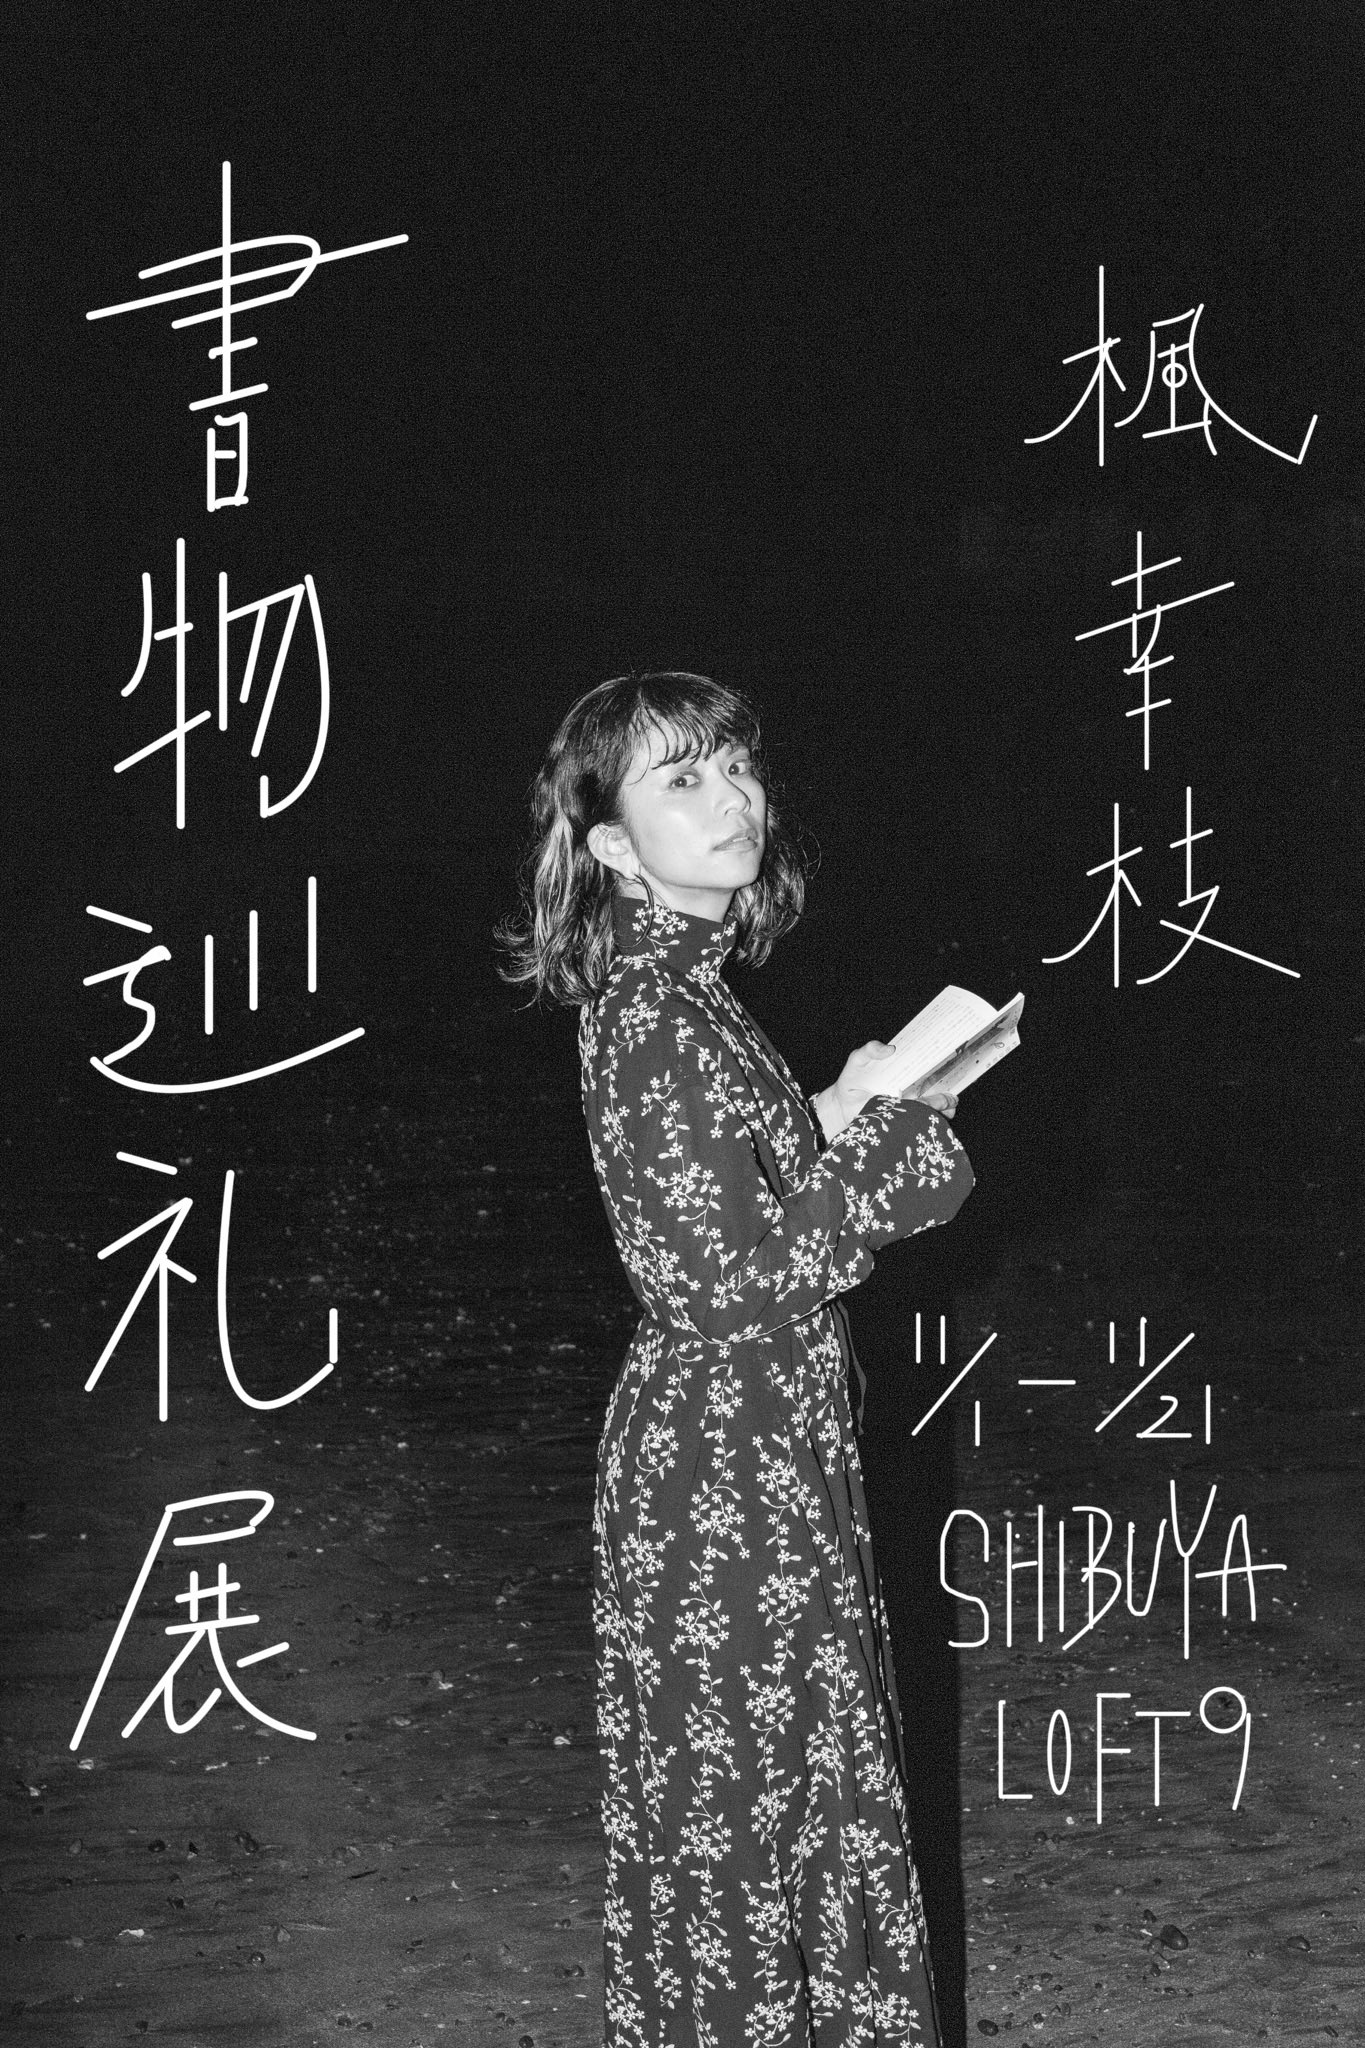 楓幸枝
書物巡礼展
11/1―11/21
SHIBUYA
LOFT9